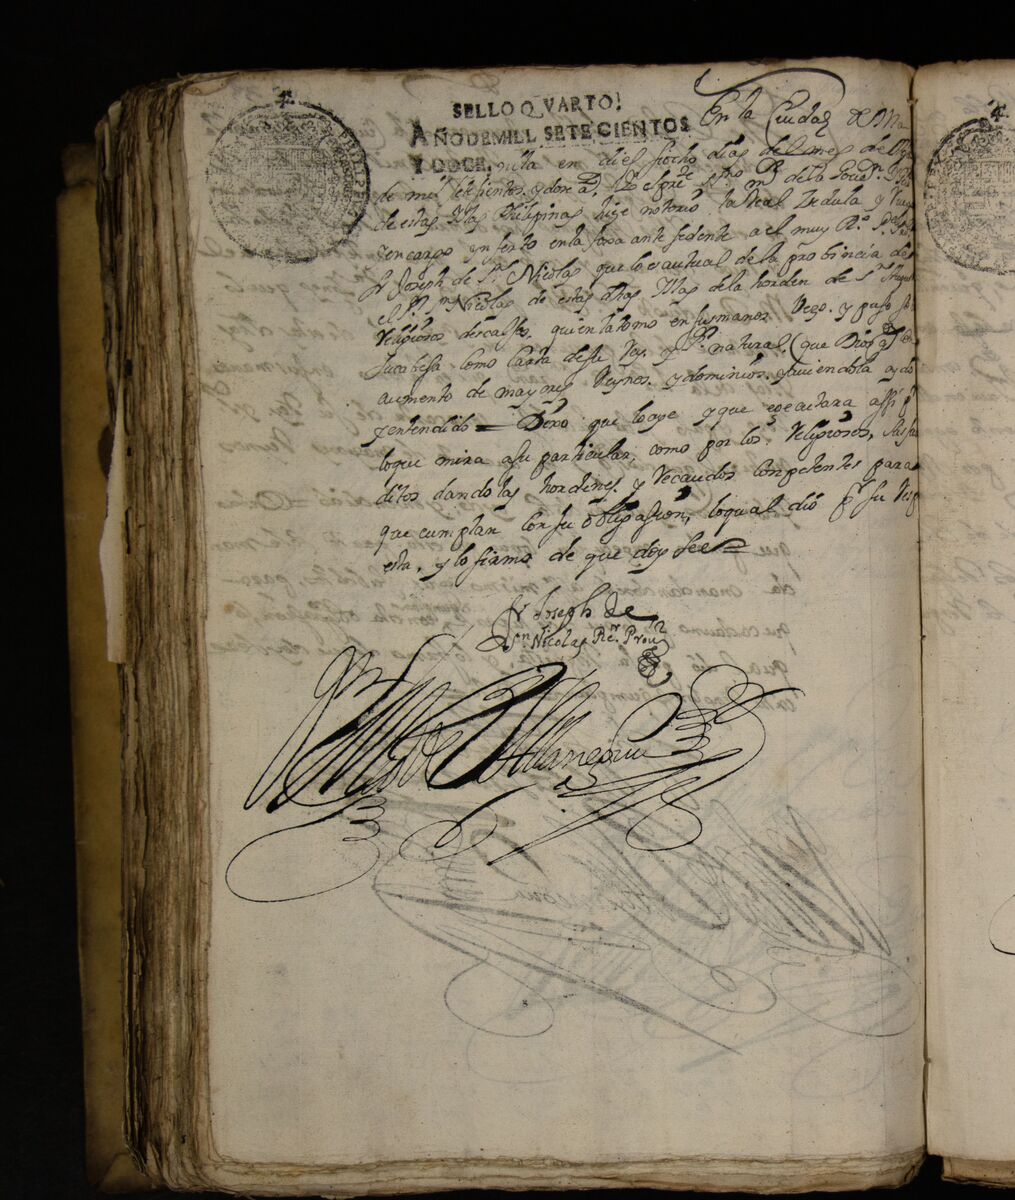 SELLO QVARTO!
AÑO DE MILL SETECIENTOS
Y DOCE,
PHILIPP
En la Ciudad de Ma
nila en dies y ocho dias del mes de
de mil setesientos y dose a.s Yo el press.te ss.no m.r de la Gou.on
de estas Yslas Philipinas hise notorio la Real Zedula y
en cargo ynserto en la foxa antesedente a el muy R.do P.e
fr Joseph de S.n Nicolas que lo es actual de la probincia de
S.n Nicolas de estas dhas Yslas de la horden de
Religiosos descalsos, quien la tomo en sus manos beso y puso
su cabesa como Carta de su Rey y S.r natural (que Dios g.e)
aumento de mayores Reynos y dominios y auiendola oydo
y entendido = Dixo que lo oye y que executara assi p.r
lo que mira a su particular, como por los Religiosos, sus su
ditos dandoles las hordenes y Recaudos competentes para
que cumplan con su obligassion, lo qual dio p.r su Resp
esta, y lo firmo de que doy fee =
fr Joseph de
S.n Nicolas Re.r Prou.l
de Villanueua